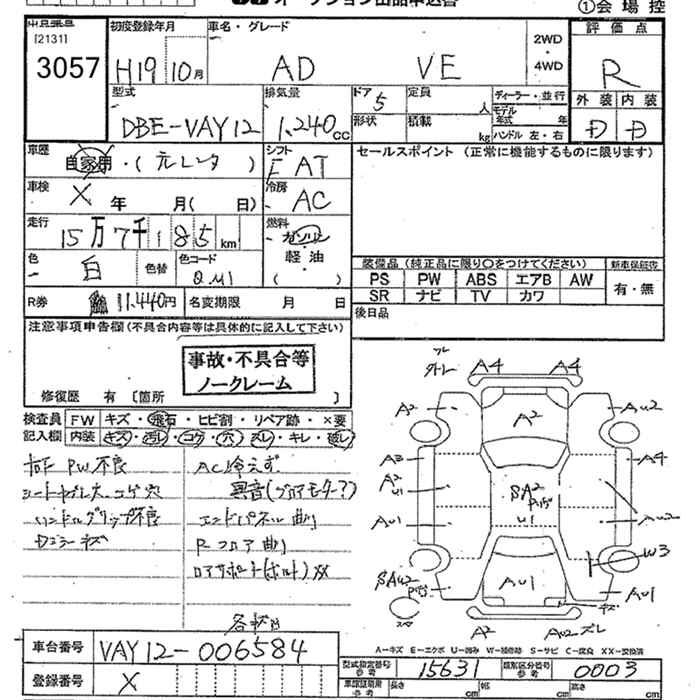 オークション出品申込書
①会場控
[2131]
3057
初度登録年月
H19 10月
車名・グレード
AD VE
2WD
・
4WD
評価点
R
外装 内装
D D
型式
DBE-VAY12
排気量
1,240cc
ドア 5
形状
定員 人
積載 kg
ディーラー・並行
モデル年式 年
ハンドル 左・右
車歴
自家用・(元レンタ)
シフト
FAT
セールスポイント (正常に機能するものに限ります)
車検
X 年 月(日)
冷房
AC
走行
15万7千185km
燃料
ガソリン
軽油
( )
色
白
色替
色コード
QM1
装備品 (純正品に限り○をつけてください)
新車保証書
PS PW ABS エアB AW
SR ナビ TV カワ
有・無
R券 11,440円
名変期限 月 日
後日品
注意事項申告欄(不具合内容等は具体的に記入して下さい)
事故・不具合等
ノークレーム
修復歴 有 [箇所 ]
検査員 FW キズ・飛石・ヒビ割・リペア跡・×要
記入欄 内装 キズ・汚レ・コゲ・穴・スレ・キレ・破レ
PW不良
シートヤブレ大、コゲ穴
ハンドルグリップ不良
AC冷えず
異音(ブロアモーター?)
エンドパネル曲り
Rフロア曲り
コアサポート(ボルト)XX
A4 A4
A2 A2 AU2
A3 A4
A2
U1
SA2
U1
AU1 AU2
W3
SAU2
AU1 AU1
キズ
A2 AU2 ズレ
車台番号 VAY12-006584
登録番号 X
A-キズ E-エクボ U-凹み W-補修跡 S-サビ C-腐食 XX-交換済
型式指定番号 参考 15631
類別区分番号 参考 0003
車庫証明用 参考 長さ cm 幅 cm 高さ cm